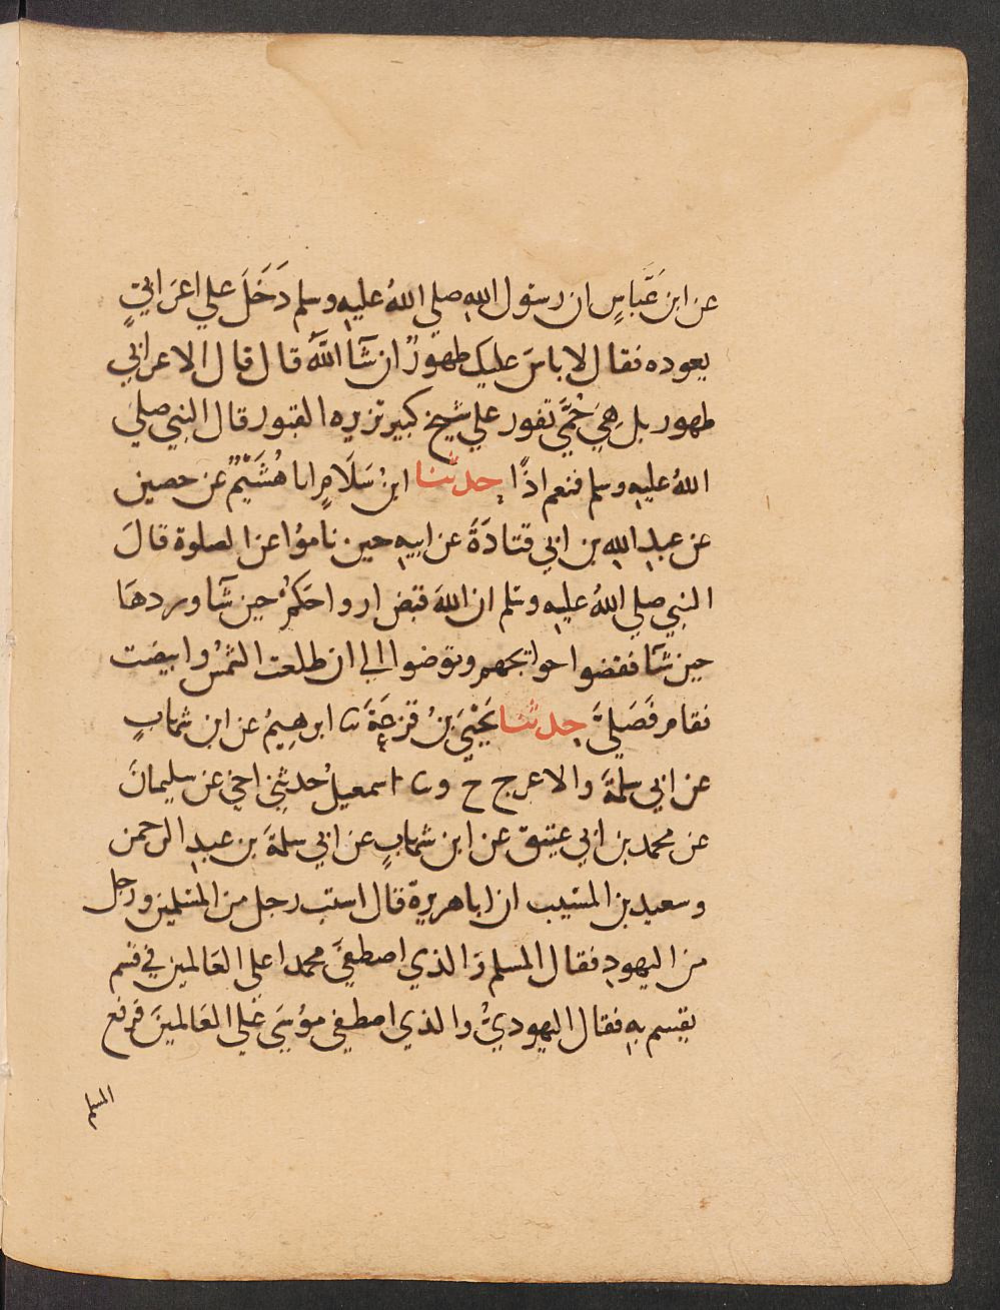 عن ابن عَبّاسٍ ان رسول اللهِ صلي اللهُ عليه وسلم دَخَلَ علي اعرَابيٍّ
يعوده فقال لا باسَ عليك طهورٌ ان شآ اللَّهُ قال قال الاعرابي
طهور بل هِيَ حُمَّي تفور علي شيخ كبير تزيره القبور قال النبي صلي
اللهُ عليه وسلم فنعم اذًا حدثنا ابنُ سَلَامٍ انا هُشَيْمٌ عن حصين
عن عبدِ اللهِ بن ابي قتادَةَ عن ابيه حين نامُوا عن الصلوة قالَ
النبي صلي اللهُ عليه وسَلم ان اللهَ قبَض ارواحَكمُ حين شآ وردهَا
حين شآ فقضوا حوايجهم وتوضوا الي ان طلعت الشمسُ وابيضت
فقام فَصَليَّ حدثنا يَحْيَي بنُ قزعَةَ ثنا ابرهِيمُ عن ابن شهابٍ
عن ابي سلمةَ والاعرج ح وثنا اسمعيلُ حدثني اخي عن سليمانَ
عن محمد بن ابي عتيق عن ابن شهابٍ عن ابي سلمةَ بن عبدِ الرحمن
وسعيد بن المسَيب ان ابا هريرة قال استب رجل من المسَلمين ورجل
من اليهودِ فقال المسلم وَالذي اصطفيَ محمدا علي العَالمين في قسَم
يقسم بهِ فقال اليهوديُّ والذي اصطفي موُسَي عَلي العَالمينَ فرَفع
المسلم